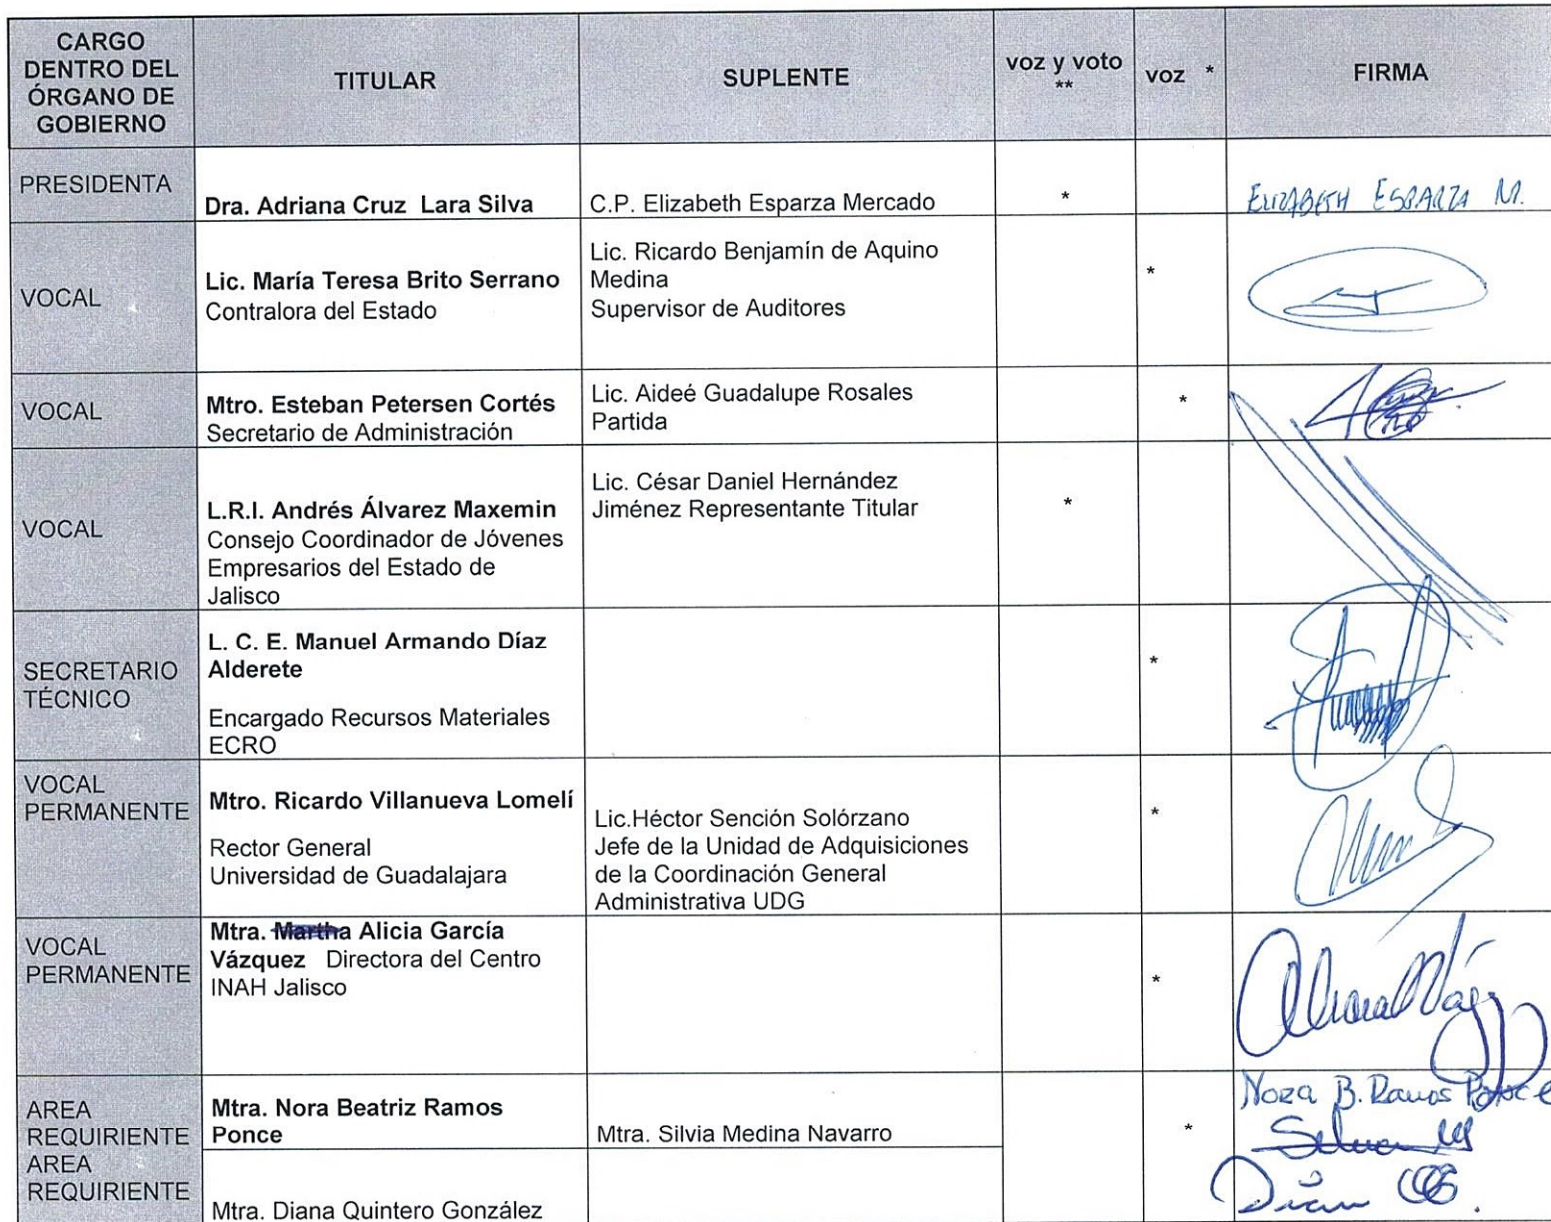 CARGO
DENTRO DEL
ÓRGANO DE
GOBIERNO
TITULAR
SUPLENTE
voz y voto
**
voz *
FIRMA
PRESIDENTA
Dra. Adriana Cruz Lara Silva
C.P. Elizabeth Esparza Mercado
*
ELIZABETH ESPARZA M.
VOCAL
Lic. María Teresa Brito Serrano
Contralora del Estado
Lic. Ricardo Benjamín de Aquino
Medina
Supervisor de Auditores
*
VOCAL
Mtro. Esteban Petersen Cortés
Secretario de Administración
Lic. Aideé Guadalupe Rosales
Partida
*
VOCAL
L.R.I. Andrés Álvarez Maxemin
Consejo Coordinador de Jóvenes
Empresarios del Estado de
Jalisco
Lic. César Daniel Hernández
Jiménez Representante Titular
*
SECRETARIO
TÉCNICO
L. C. E. Manuel Armando Díaz
Alderete
Encargado Recursos Materiales
ECRO
*
VOCAL
PERMANENTE
Mtro. Ricardo Villanueva Lomelí
Rector General
Universidad de Guadalajara
Lic.Héctor Sención Solórzano
Jefe de la Unidad de Adquisiciones
de la Coordinación General
Administrativa UDG
*
VOCAL
PERMANENTE
Mtra. Martha Alicia García
Vázquez Directora del Centro
INAH Jalisco
*
AREA
REQUIRIENTE
AREA
REQUIRIENTE
Mtra. Nora Beatriz Ramos
Ponce
Mtra. Silvia Medina Navarro
*
Nora B. Ramos Ponce
Mtra. Diana Quintero González